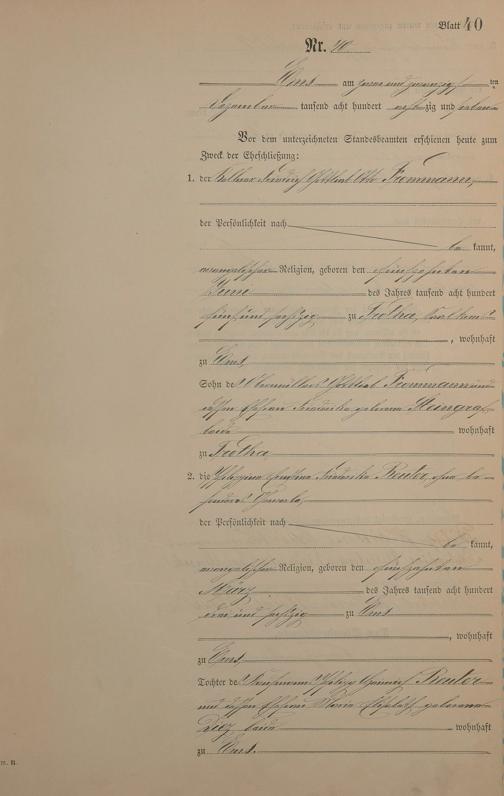 Blatt 40
Nr. 40
Ems am zwei und zwanzigsten
Dezember tausend acht hundert neunzig und sieben
Vor dem unterzeichneten Standesbeamten erschienen heute zum
Zweck der Eheschließung:
1. der Kellner Friedrich Gottlieb Otto Frommann,
der Persönlichkeit nach
be kannt,
evangelischer Religion, geboren den fünfzehnten
Juni des Jahres tausend acht hundert
fünf und sechzig zu Trotha,
, wohnhaft
zu Ems,
Sohn des Gottlieb Frommann und
dessen Ehefrau Friederike geborene
beide wohnhaft
zu Trotha
2. die Philippine Friederike Reuter, ohne be-
sonderes Gewerbe,
der Persönlichkeit nach
be kannt,
evangelischer Religion, geboren den fünfzehnten
März des Jahres tausend acht hundert
drei und sechzig zu Ems
, wohnhaft
zu Ems,
Tochter des Kaufmanns Philipp Reuter
und dessen Ehefrau Maria Elisabeth geborene
Diez beide wohnhaft
zu Ems.